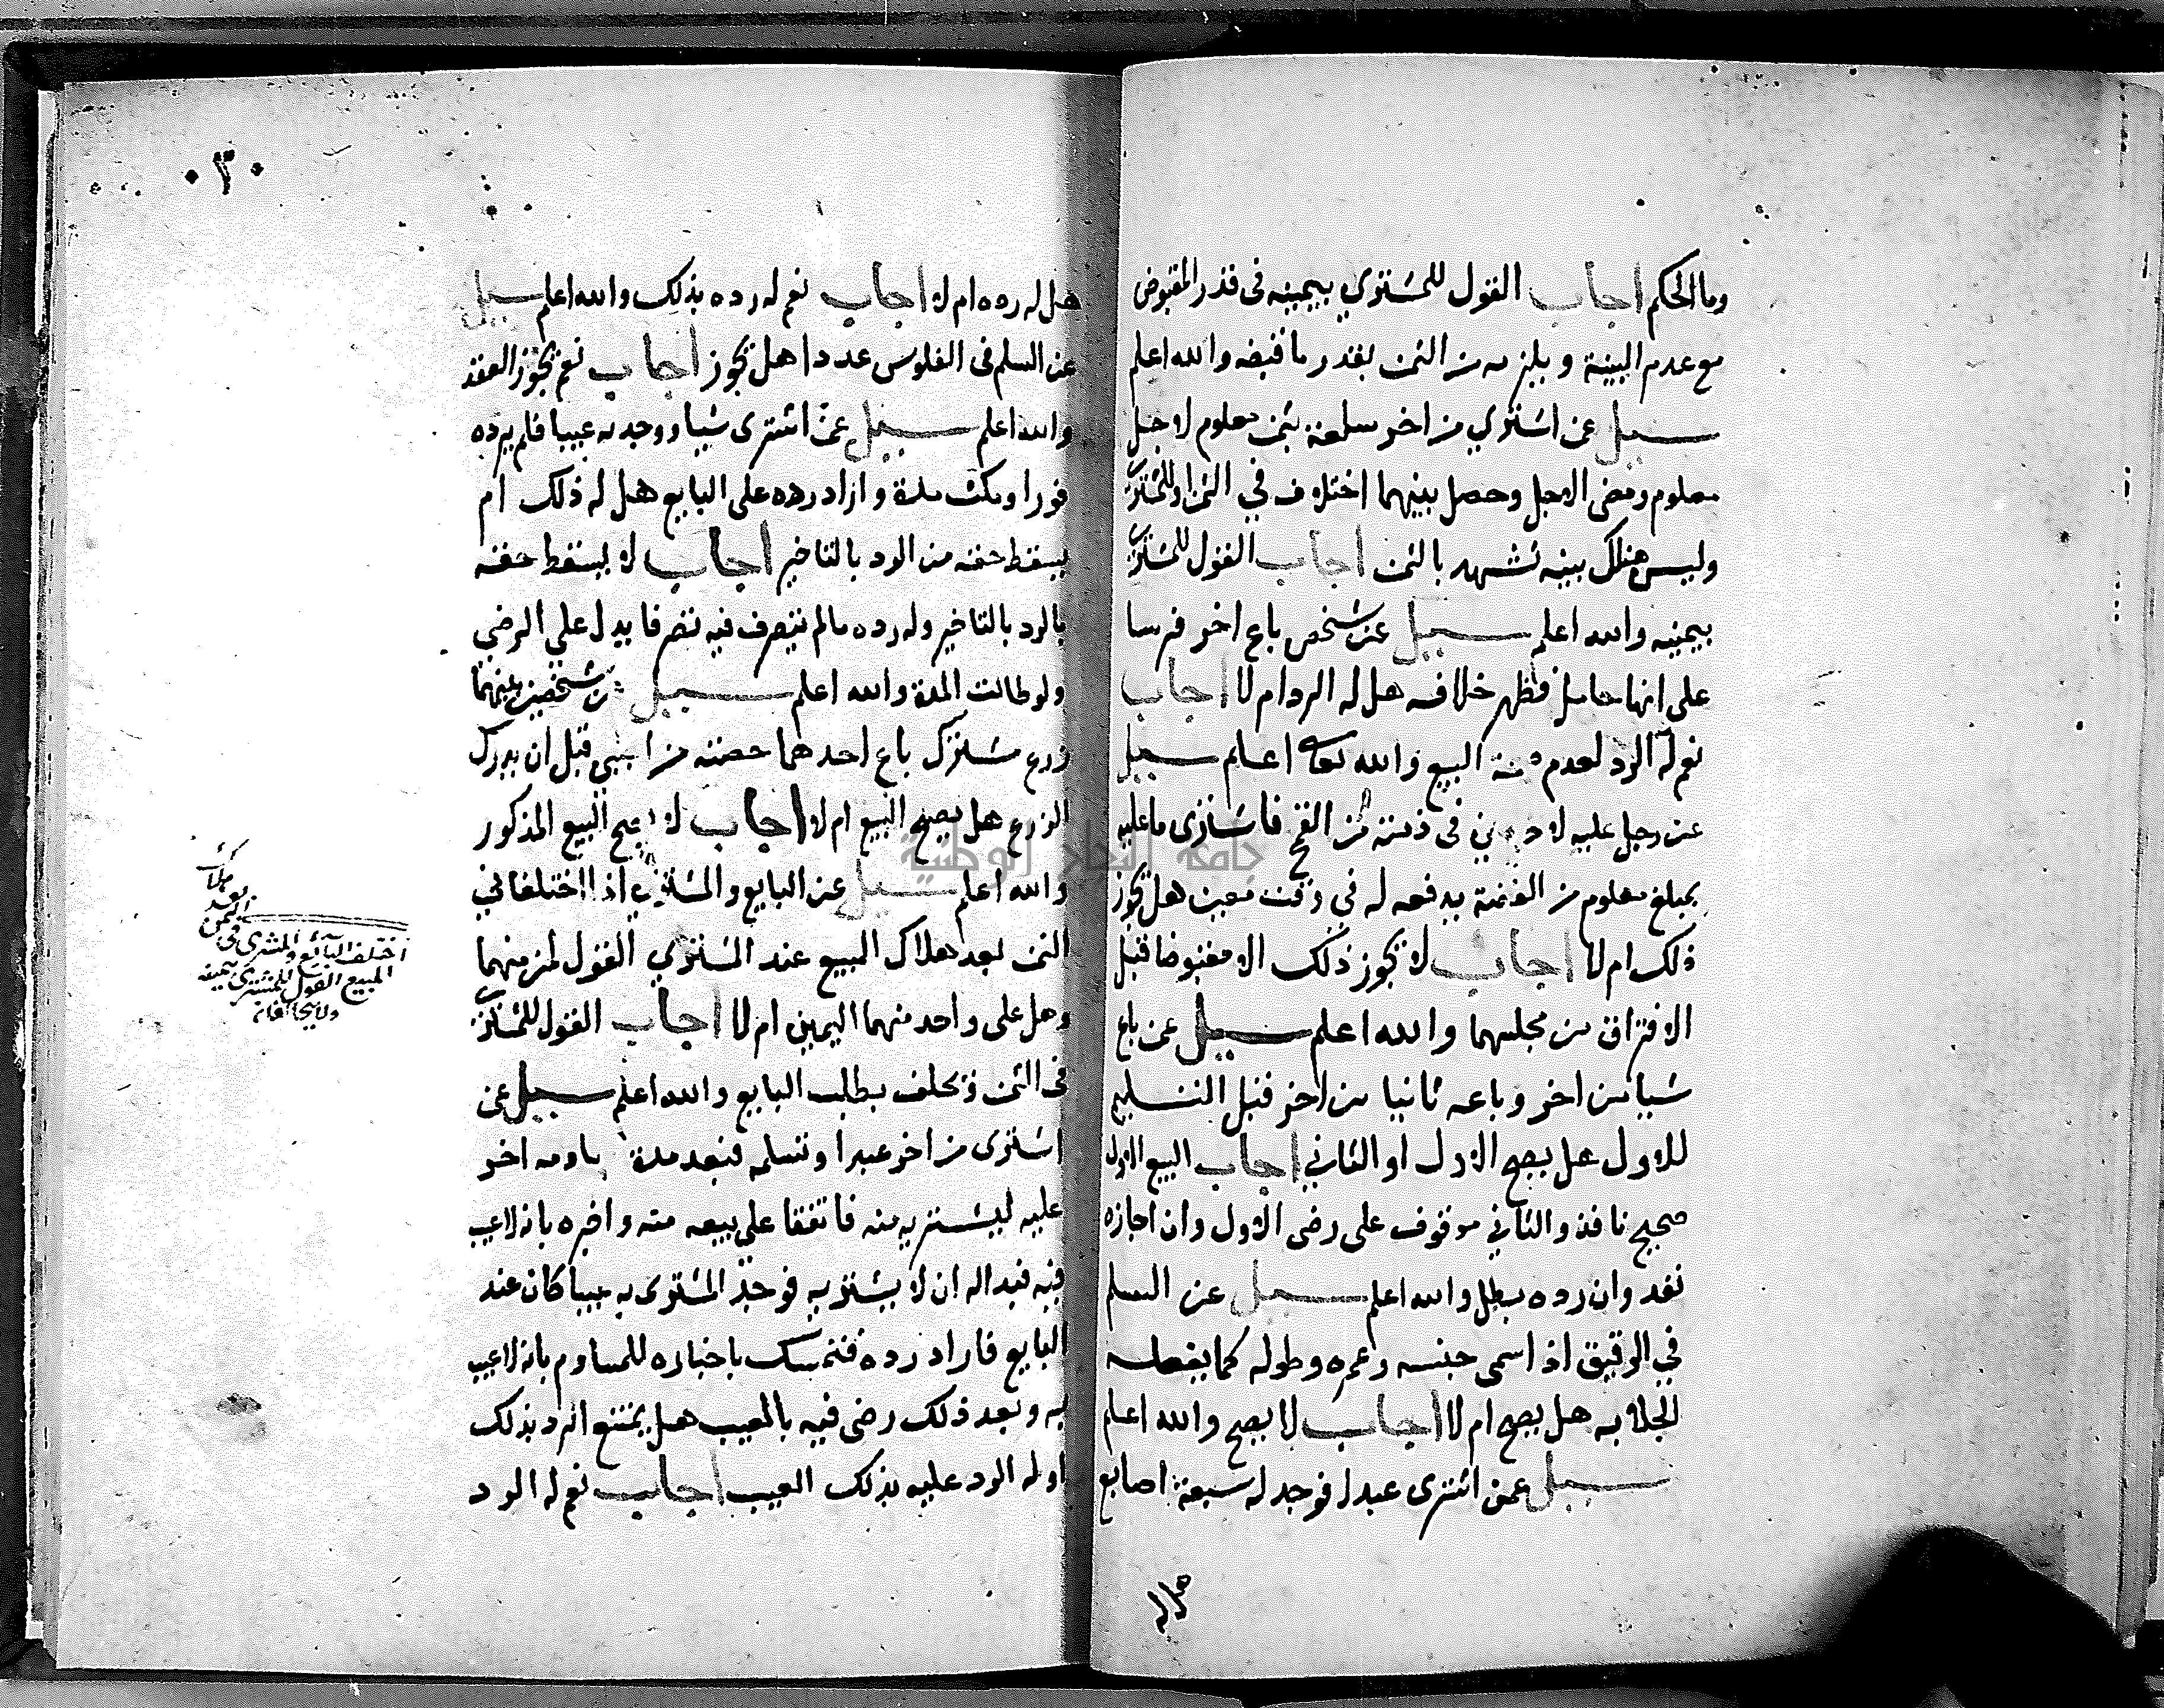 وما الحكم اجاب القول للمشتري بيمينه فى قدر المقبوض
مع عدم البينة ويلزمه من الثمن بقدر ما قبضه والله اعلم
سيل عن اشتري من اخر سلعة بثمن معلوم لاجل
معلوم ومضى الاجل وحصل بينهما اختلاف في الثمن
وليس هنلك بينه تشهد بالثمن اجاب القول للمشتري
بيمينه والله اعلم سيل عن شخص باع اخر فرسا
على انها حامل فظهر خلافه هل له الرد ام لا اجاب
نعم له الرد لعدم البيع والله تعالى اعلم سيل
عن رجل عليه في ذمته من القمح فاشترى ما عليه
بمبلغ معلوم من الفضة يدفعه له في وقت معين هل يجوز
ذلك ام لا اجاب لا يجوز ذلك الا مقبوضا قبل
الافتراق من مجلسهما والله اعلم سيل عمن باع
شيا من اخر وباعه ثانيا من اخر قبل التسليم
للاول هل يصح الاول او الثاني اجاب البيع الاول
صحيح نافذ والثاني موقوف على رضى الاول وان اجازه
نفد وان رده بطل والله اعلم سيل عن السلم
في الرقيق اذ اسمى جنسه وعمره وطوله كما يفعله
الجلابه هل يصح ام لا اجاب لا يصح والله اعلم
سيل عمن اشترى عبدا فوجد له سبعة اصابع
هل له
٠٣٠
هل له رده ام لا اجاب نعم له رده بذلك والله اعلم سيل
عن السلم فى الفلوس عددا هل يجوز اجاب نعم يجوز العقد
والله اعلم سيل عمن اشترى شيا ووجد به عيبا فلم يرده
فورا ومكث مدة وازاد رده على البايع هل له ذلك ام
يسقط حقه من الرد بالتاخير اجاب لا يسقط حقه
بالرد بالتاخير وله رده مالم يتصرف فيه تصرفا يدل علي الرضي
ولو طالت المدة والله اعلم سيل عن شخصين بينهما
زرع مشترك باع احدهما حصته من اجنبي قبل ان يدرك
الزرع هل يصح البيع ام لا اجاب لا يصح البيع المذكور
والله اعلم سيل عن البايع والمشتري اذا اختلفا في
الثمن بعد هلاك المبيع عند المشتري القول لمن منهما
وهل على واحد منهما اليمين ام لا اجاب القول للمشتري
فى الثمن ويحلف بطلب البايع والله اعلم سيل عن
اشترى من اخر عبدا وتسلمه فبعد مدة ساومه اخر
عليه ليشتريه منه فاتفقا علي بيعه منه واخبره بانه لاعيب
فيه فبداله ان لا يشتريه فوجد المشترى به عيبا كان عند
البايع فاراد رده فتمسك باخباره للمساوم بانه لاعيب
به وبعد ذلك رضى فيه بالمعيب هل يمتنع الرد بذلك
اوله الرد عليه بذلك العيب اجاب نعم له الرد
بعد
الثمن
اختلف البائع والمشترى فى
المبيع القول للمشترى بيمينه